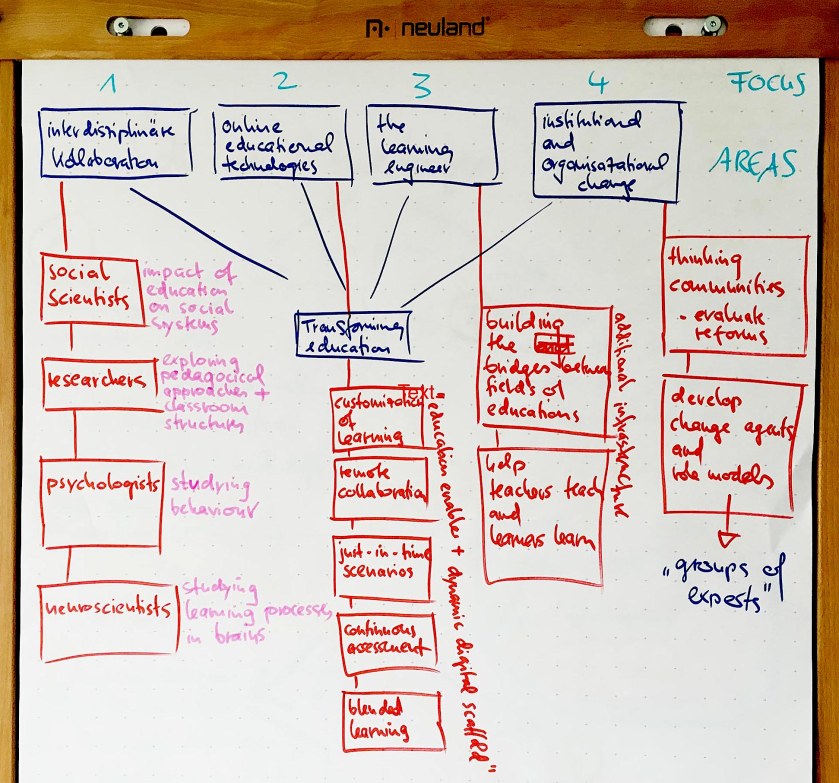 neuland
1
2
3
4
FOCUS
AREAS
interdisziplinäre
Kollaboration
online
educational
technologies
the
learning
engineer
institutional
and
organisational
change
Transforming
education
social
scientists
impact of
education
on social
systems
researchers
exploring
pedagocical
approaches +
classroom
structures
psychologists
studying
behaviour
neuroscientists
studying
learning processes
in brains
Text
customization
of
learning
remote
collaboration
just-in-time
scenarios
continuous
assessment
blended
learning
"education enabler + dynamic digital scaffold"
building
the
bridges between
fields of
educations
help
teachers teach
and
learners learn
additional infrastructure
thinking
communities
- evaluate
reforms
develop
change agents
and
role models
„groups of
experts"